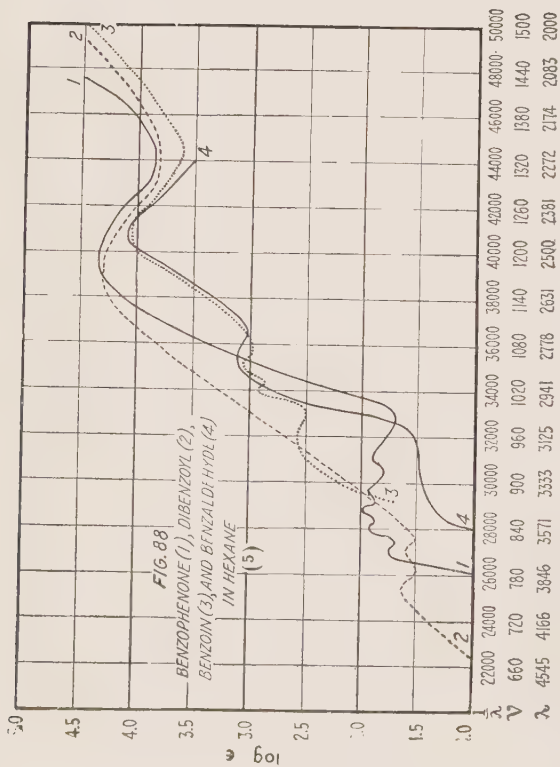 FIG. 88
BENZOPHENONE (1), DIBENZOYL (2),
BENZOIN (3), AND BENZALDEHYDE (4)
IN HEXANE
(5)
1
2
3
4
3
4
1
2
log ε
5.0
4.5
4.0
3.5
3.0
2.5
2.0
1.5
1.0
1/λ 22000 24000 26000 28000 30000 32000 34000 36000 38000 40000 42000 44000 46000 48000 50000
ν 660 720 780 840 900 960 1020 1080 1140 1200 1260 1320 1380 1440 1500
λ 4545 4166 3846 3571 3333 3125 2941 2778 2631 2500 2381 2272 2174 2083 2000